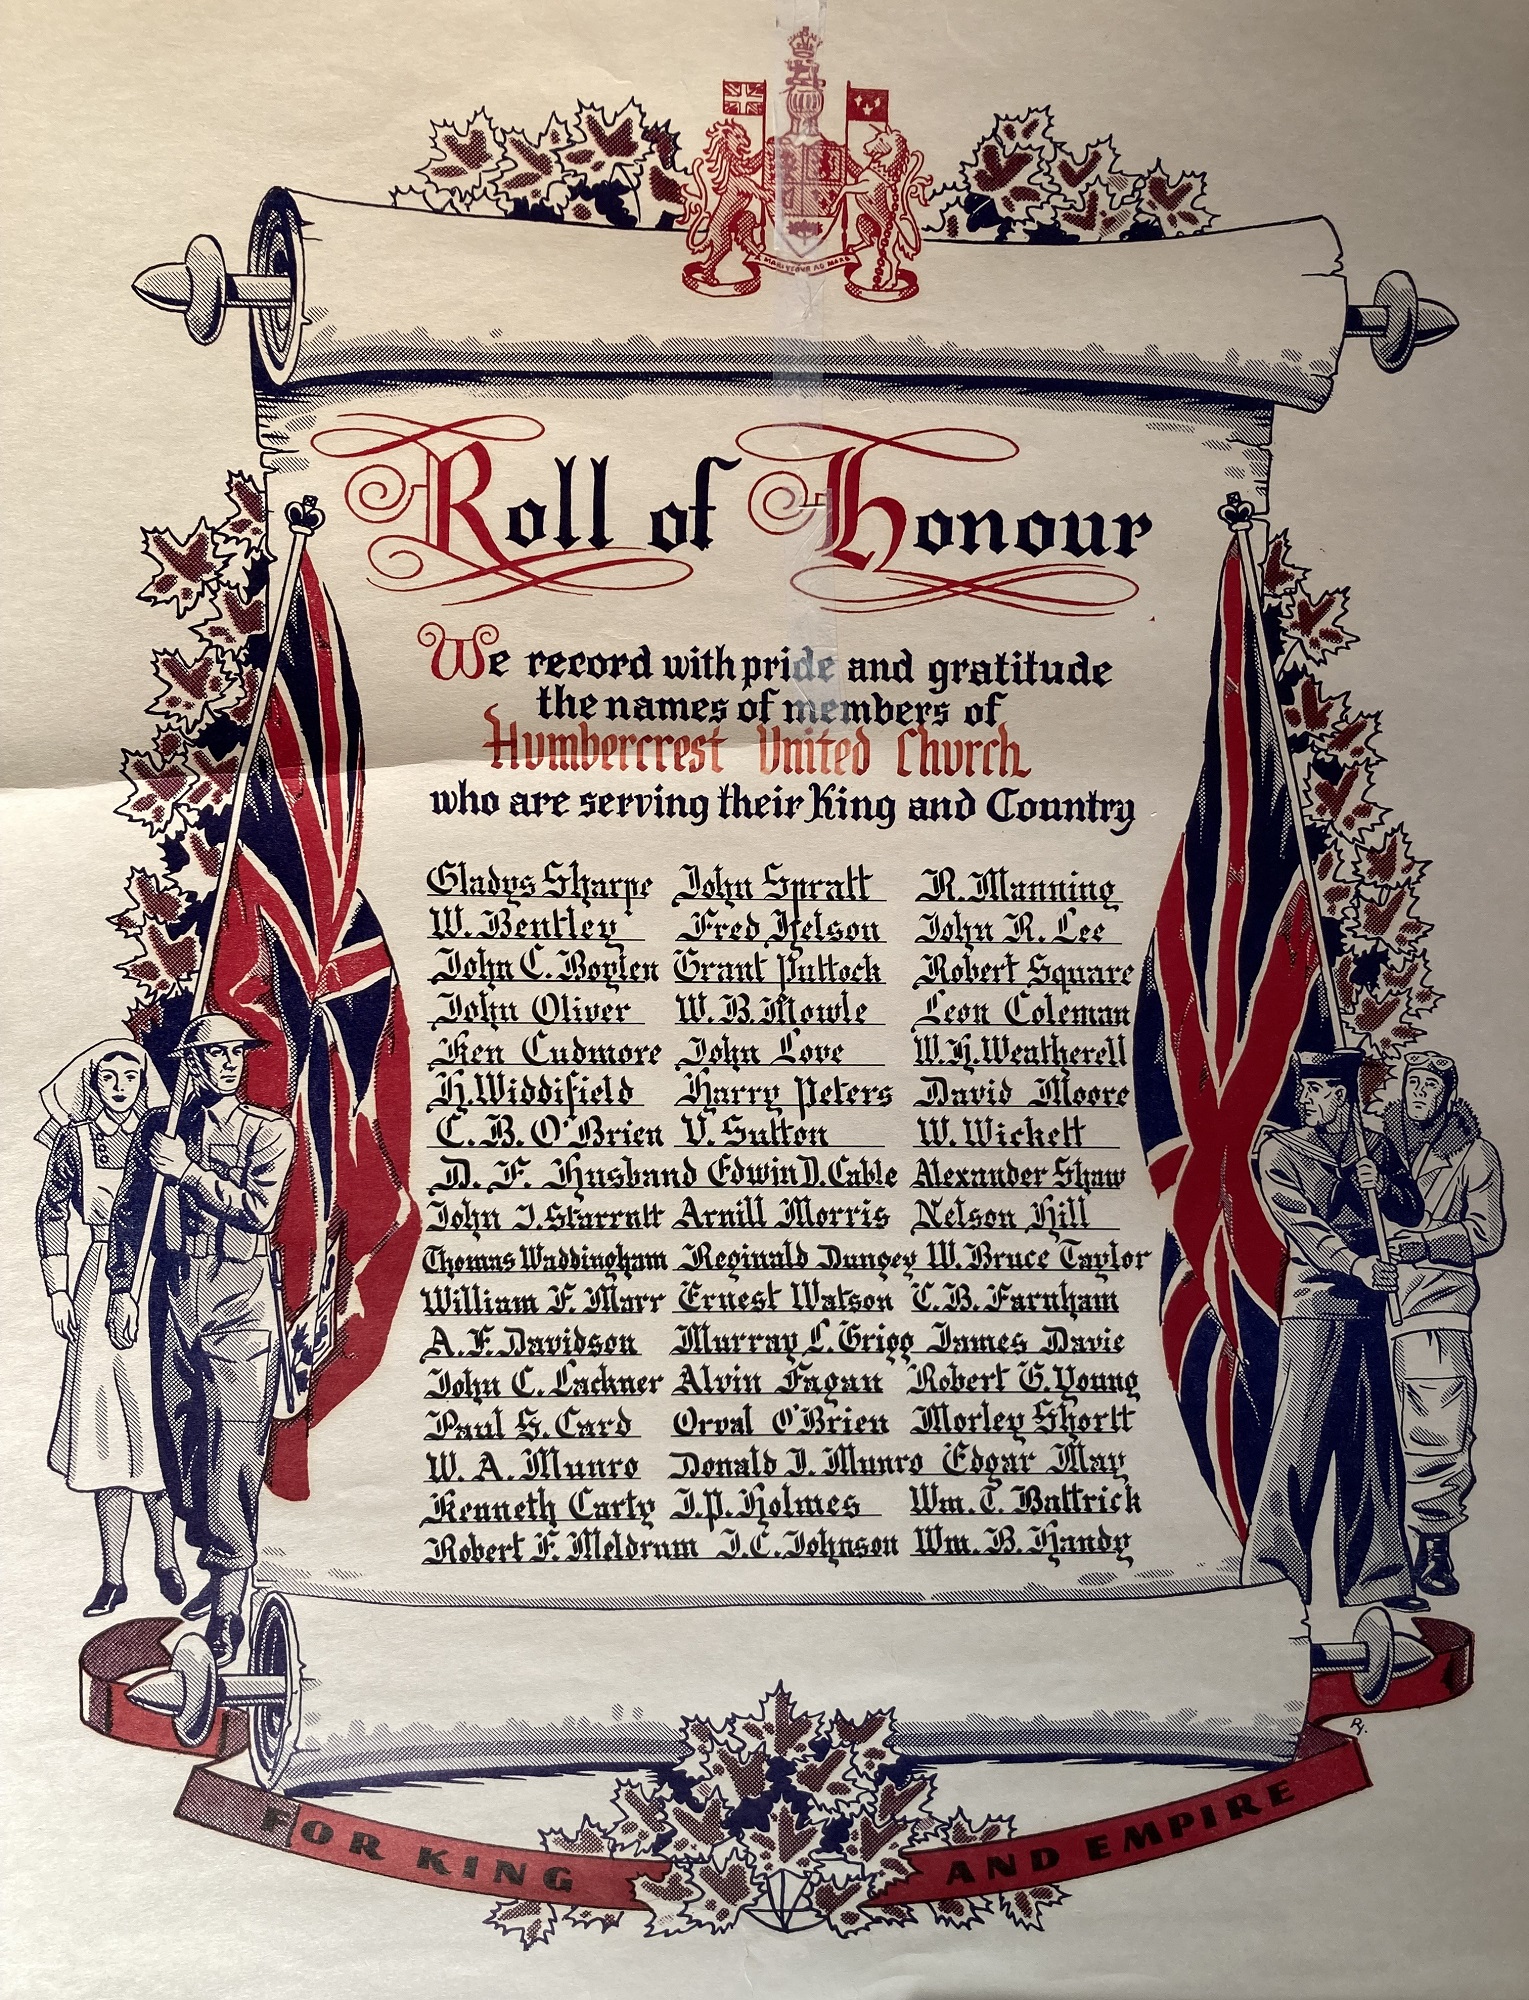 A MARI USQUE AD MARE
Roll of Honour
We record with pride and gratitude
the names of members of
Humbercrest United Church
who are serving their King and Country
Gladys Sharpe John Spratt R. Manning
W. Bentley Fred Nelson John R. Lee
John C. Boylen Grant Puttock Robert Square
John Oliver W. B. Mowle Leon Coleman
Ken Cudmore John Love W. H. Weatherell
H. Widdifield Harry Peters David Moore
C. B. O'Brien V. Sutton W. Wickett
D. F. Husband Edwin D. Cable Alexander Shaw
John J. Starratt Arnill Morris Nelson Hill
Thomas Waddingham Reginald Dungey W. Bruce Taylor
William F. Marr Ernest Watson C. B. Farnham
A. F. Davidson Murray L. Grigg James Davie
John C. Lackner Alvin Fagan Robert G. Young
Paul S. Card Orval O'Brien Morley Shortt
W. A. Munro Donald J. Munro Edgar May
Kenneth Carty J. P. Holmes Wm. T. Battrick
Robert F. Meldrum J. C. Johnson Wm. B. Handy
RY.
FOR KING AND EMPIRE